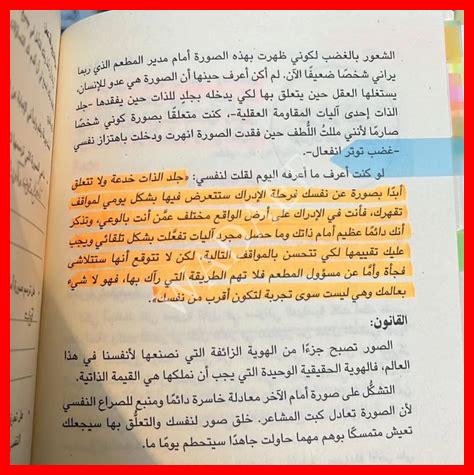 الشعور بالغضب لكوني ظهرت بهذه الصورة أمام مدير المطعم الذي ربما
يراني شخصًا ضعيفًا الآن. لم أكن أعرف حينها أن الصورة هي عدو للإنسان،
يستغلها العقل حين يتعلق بها لكي يدخله بجلدٍ للذات حين يفقدها -جلد
الذات إحدى آليات المقاومة العقلية-، كنت متعلقًا بصورة كوني شخصًا
صارمًا لأنني ملتُ للُّطف حين فقدت الصورة انهرت ودخلت باهتزاز نفسي
-غضب توتر انفعال-.
لو كنت أعرف ما أعرفه اليوم لقلت لنفسي: «جلد الذات خدعة ولا تتعلق
أبدًا بصورة عن نفسك فرحلة الإدراك ستتعرض فيها بشكل يومي لمواقف
تقهرك، فأنت في الإدراك على أرض الواقع مختلف عمَّن أنت بالوعي، وتذكر
أنك دائمًا عظيم أمام ذاتك وما حصل مجرد آليات تفعَّلت بشكل تلقائي ويجب
عليك تقييمها لكي تتحسن بالمواقف التالية، لكن لا تتوقع أنها ستتلاشى
فجأة وأمَّا عن مسؤول المطعم فلا تهم الطريقة التي رآك بها، فهو لا شيء
بعالمك وهي ليست سوى تجربة لتكون أقرب من نفسك».
القانون:
الصور تصبح جزءًا من الهوية الزائفة التي نصنعها لأنفسنا في هذا
العالم، فالهوية الحقيقية الوحيدة التي يجب أن نملكها هي القيمة الذاتية.
التشكُّل على صورة أمام الآخر معادلة خاسرة دائمًا ومنبع للصراع النفسي
لأن الصورة تعادل كبت المشاعر. خلق صور لنفسك والتعلُّق بها سيجعلك
تعيش متمسكًا بوهم مهما حاولت جاهدًا سيتحطم يومًا ما.